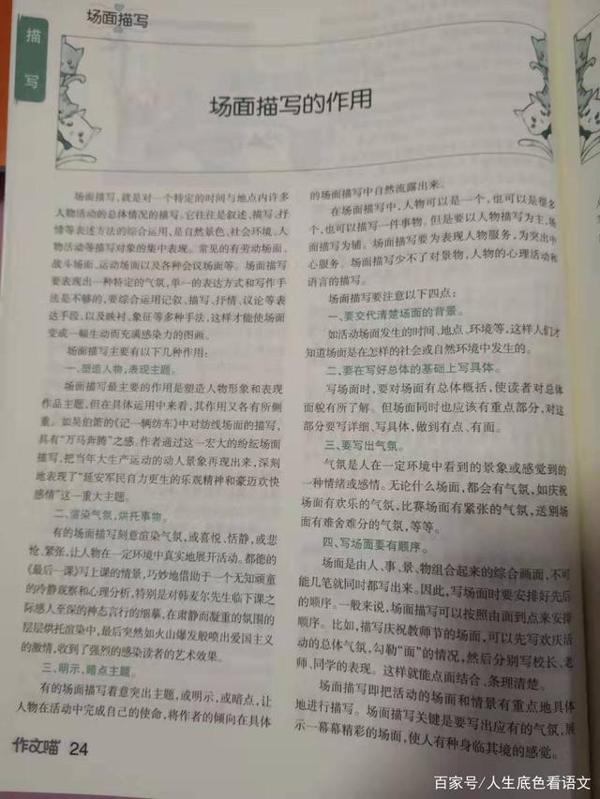 场面描写
描写
场面描写的作用
场面描写,就是对一个特定的时间与地点内许多
人物活动的总体情况的描写。它往往是叙述、描写、抒
情等表述方法的综合运用,是自然景色、社会环境、人
物活动等描写对象的集中表现。常见的有劳动场面、
战斗场面、运动场面以及各种会议场面等。场面描写
要表现出一种特定的气氛,单一的表达方式和写作手
法是不够的,要综合运用记叙、描写、抒情、议论等表
达手段,以及映衬、象征等多种手法,这样才能使场面
变成一幅生动而充满感染力的图画。
场面描写主要有以下几种作用:
一、塑造人物,表现主题。
场面描写最主要的作用是塑造人物形象和表现
作品主题,但在具体运用中来看,其作用又各有所侧
重。如吴伯箫的《记一辆纺车》中对纺线场面的描写,
具有“万马奔腾”之感。作者通过这一宏大的纷纭场面
描写,把当年大生产运动的动人景象再现出来,深刻
地表现了“延安军民自力更生的乐观精神和豪迈欢快
感情”这一重大主题。
二、渲染气氛,烘托事物。
有的场面描写刻意渲染气氛,或喜悦、恬静,或悲
怆、紧张,让人物在一定环境中真实地展开活动。都德的
《最后一课》写上课的情景,巧妙地借助于一个无知顽童
的冷静观察和心理分析,特别是对韩麦尔先生临下课之
际感人至深的神态言行的细摹,在肃静而凝重的氛围的
层层烘托渲染中,最后突然如火山爆发般喷出爱国主义
的激情,收到了强烈的感染读者的艺术效果。
三、明示、暗点主题。
有的场面描写着意突出主题,或明示,或暗点,让
人物在活动中完成自己的使命,将作者的倾向在具体
的场面描写中自然流露出来。
在场面描写中,人物可以是一个,也可以是很多
个,也可以描写一件事物。但是要以人物描写为主,场
面描写为辅。场面描写要为表现人物服务,为突出中
心服务。场面描写少不了对景物,人物的心理活动和
语言的描写。
场面描写要注意以下四点:
一、要交代清楚场面的背景。
如活动场面发生的时间、地点、环境等,这样人们才
知道场面是在怎样的社会或自然环境中发生的。
二、要在写好总体的基础上写具体。
写场面时,要对场面有总体概括,使读者对总体
面貌有所了解。但场面同时也应该有重点部分,对这
部分要写详细、写具体,做到有点、有面。
三、要写出气氛。
气氛是人在一定环境中看到的景象或感觉到的
一种情绪或感情。无论什么场面,都会有气氛,如庆祝
场面有欢乐的气氛,比赛场面有紧张的气氛,送别场
面有难舍难分的气氛,等等。
四、写场面要有顺序。
场面是由人、事、景、物组合起来的综合画面,不可
能几笔就同时都写出来。因此,写场面时要安排好先后
的顺序。一般来说,场面描写可以按照由面到点来安排
顺序。比如,描写庆祝教师节的场面,可以先写欢庆活
动的总体气氛,勾勒“面”的情况,然后分别写校长、老
师、同学的表现。这样就能点面结合、条理清楚。
场面描写即把活动的场面和情景有重点地具体
地进行描写。场面描写关键是要写出应有的气氛,展
示一幕幕精彩的场面,使人有种身临其境的感觉。
作文喵 24
百家号/人生底色看语文